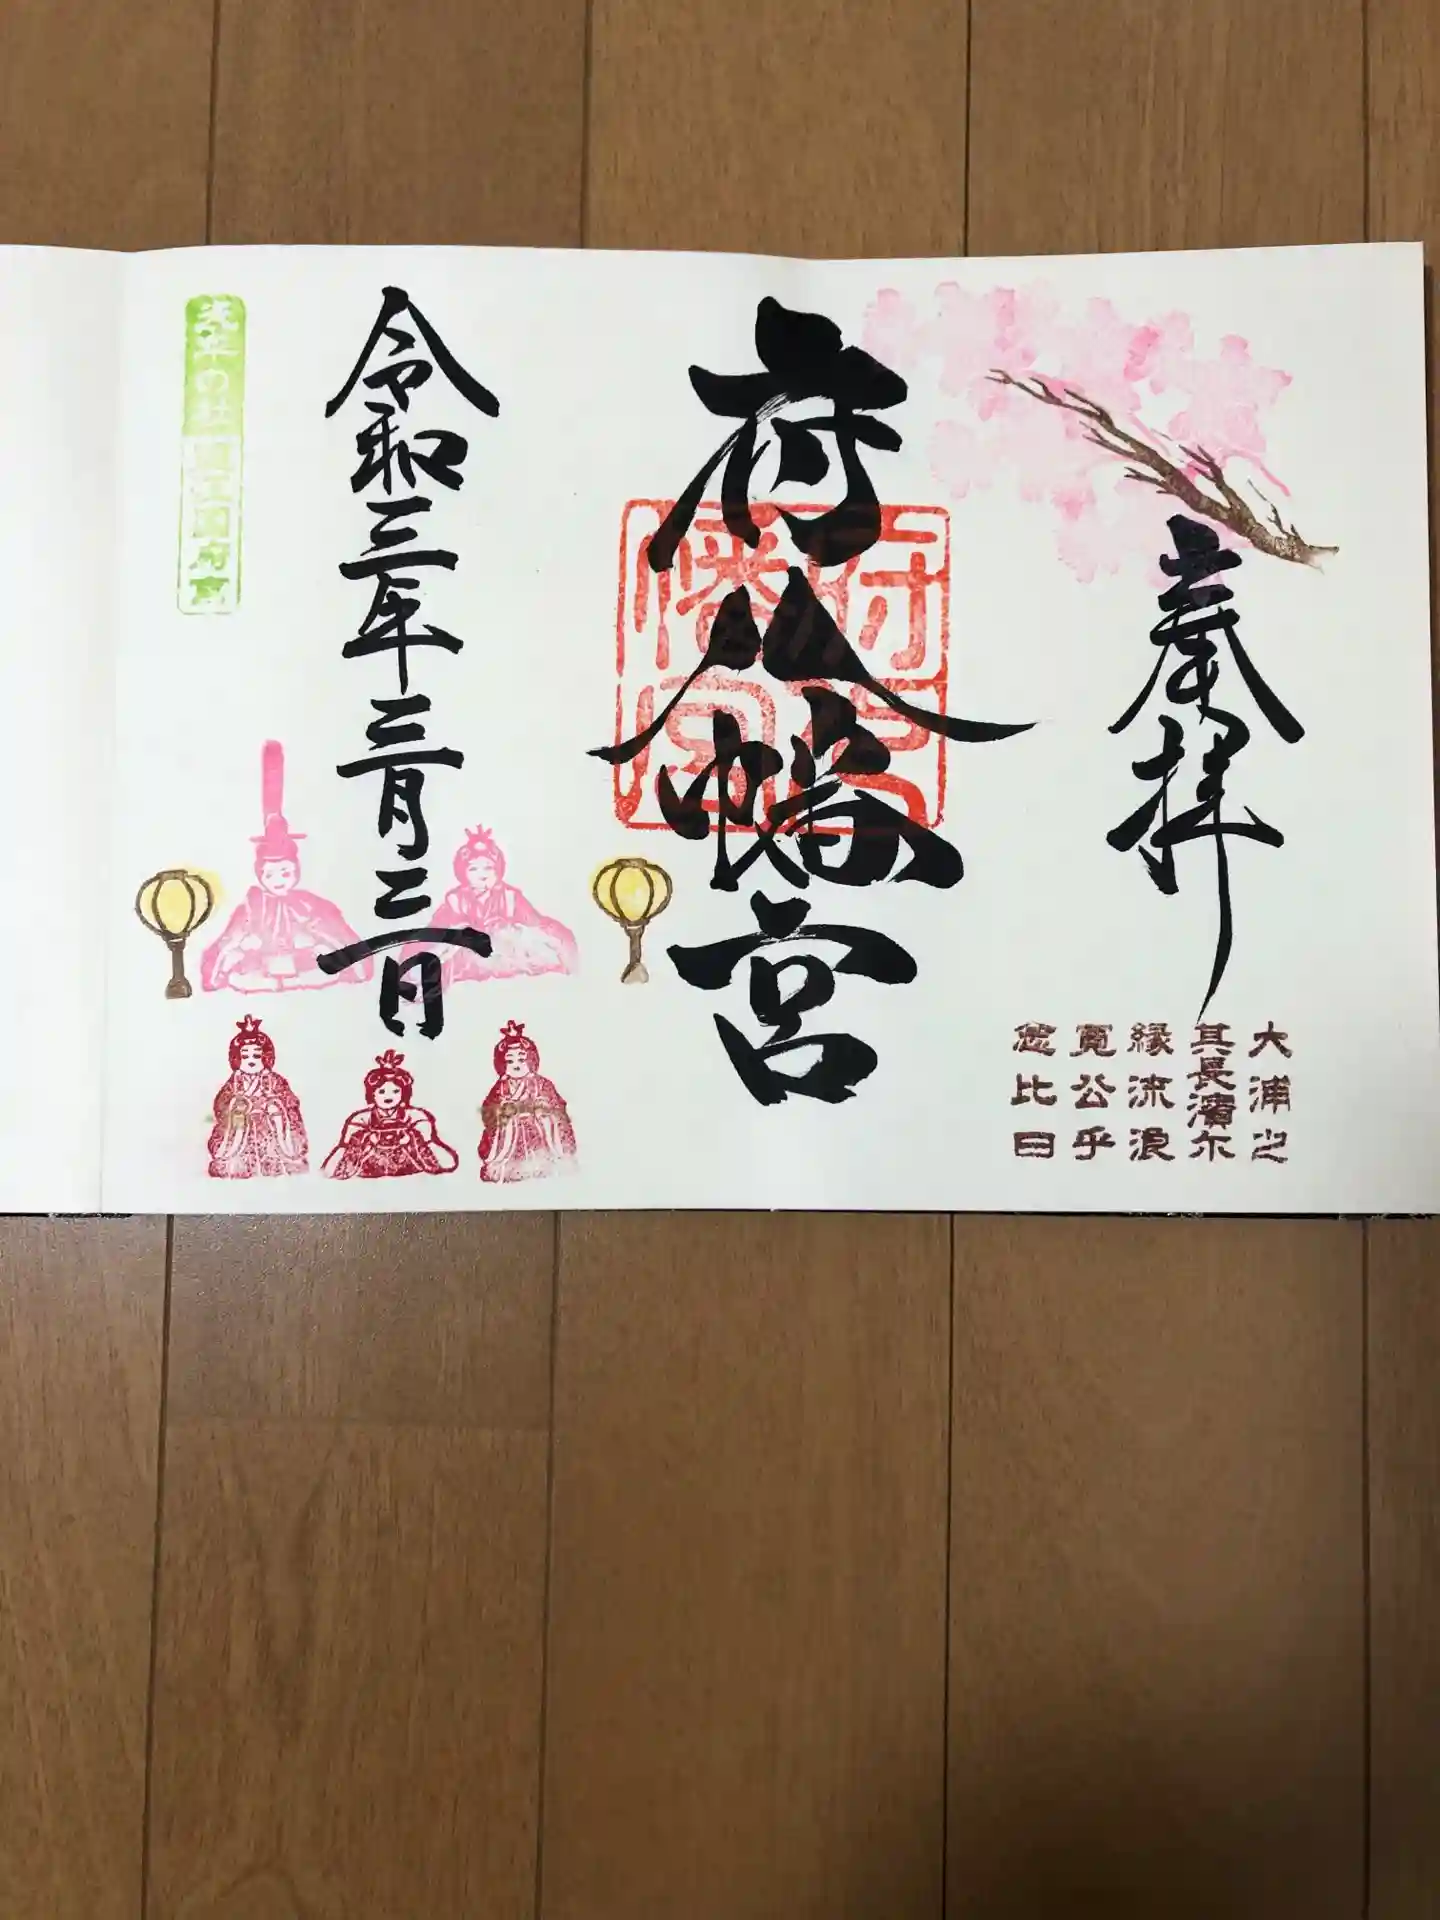 奉拝
大浦之
其長濱尓
縁流浪
寛公乎
念比日
府八幡宮
府八幡宮
令和三年三月三日
天平の社 遠江国府宮